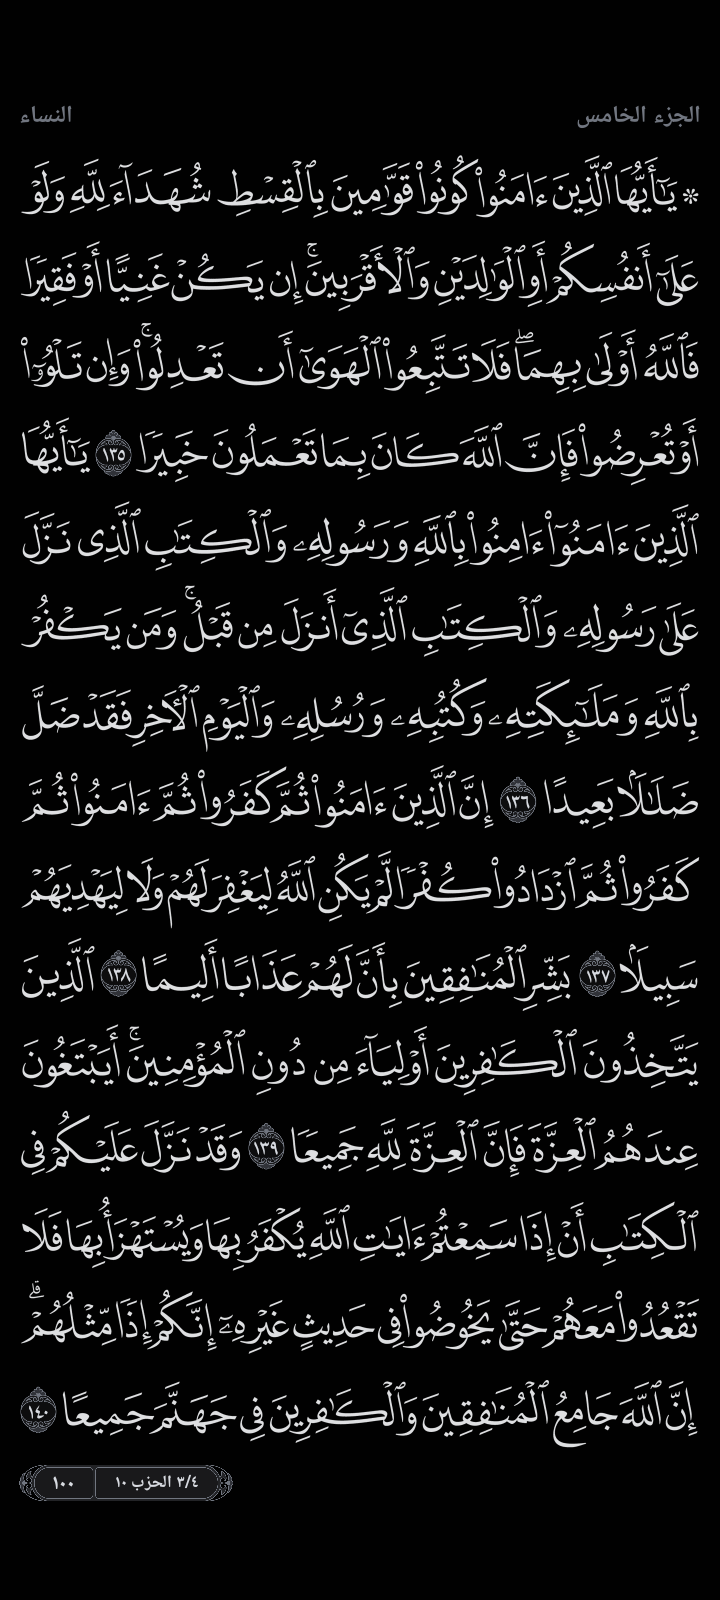 الجزء الخامس
النساء
۞ يَٰٓأَيُّهَا ٱلَّذِينَ ءَامَنُوا۟ كُونُوا۟ قَوَّٰمِينَ بِٱلْقِسْطِ شُهَدَآءَ لِلَّهِ وَلَوْ
عَلَىٰٓ أَنفُسِكُمْ أَوِ ٱلْوَٰلِدَيْنِ وَٱلْأَقْرَبِينَ ۚ إِن يَكُنْ غَنِيًّا أَوْ فَقِيرًا
فَٱللَّهُ أَوْلَىٰ بِهِمَا ۖ فَلَا تَتَّبِعُوا۟ ٱلْهَوَىٰٓ أَن تَعْدِلُوا۟ ۚ وَإِن تَلْوُۥٓا۟
أَوْ تُعْرِضُوا۟ فَإِنَّ ٱللَّهَ كَانَ بِمَا تَعْمَلُونَ خَبِيرًا ١٣٥ يَٰٓأَيُّهَا
ٱلَّذِينَ ءَامَنُوٓا۟ ءَامِنُوا۟ بِٱللَّهِ وَرَسُولِهِۦ وَٱلْكِتَٰبِ ٱلَّذِى نَزَّلَ
عَلَىٰ رَسُولِهِۦ وَٱلْكِتَٰبِ ٱلَّذِىٓ أَنزَلَ مِن قَبْلُ ۚ وَمَن يَكْفُرْ
بِٱللَّهِ وَمَلَٰٓئِكَتِهِۦ وَكُتُبِهِۦ وَرُسُلِهِۦ وَٱلْيَوْمِ ٱلْـَٔاخِرِ فَقَدْ ضَلَّ
ضَلَٰلًۢا بَعِيدًا ١٣٦ إِنَّ ٱلَّذِينَ ءَامَنُوا۟ ثُمَّ كَفَرُوا۟ ثُمَّ ءَامَنُوا۟ ثُمَّ
كَفَرُوا۟ ثُمَّ ٱزْدَادُوا۟ كُفْرًا لَّمْ يَكُنِ ٱللَّهُ لِيَغْفِرَ لَهُمْ وَلَا لِيَهْدِيَهُمْ
سَبِيلًۢا ١٣٧ بَشِّرِ ٱلْمُنَٰفِقِينَ بِأَنَّ لَهُمْ عَذَابًا أَلِيمًا ١٣٨ ٱلَّذِينَ
يَتَّخِذُونَ ٱلْكَٰفِرِينَ أَوْلِيَآءَ مِن دُونِ ٱلْمُؤْمِنِينَ ۚ أَيَبْتَغُونَ
عِندَهُمُ ٱلْعِزَّةَ فَإِنَّ ٱلْعِزَّةَ لِلَّهِ جَمِيعًا ١٣٩ وَقَدْ نَزَّلَ عَلَيْكُمْ فِى
ٱلْكِتَٰبِ أَنْ إِذَا سَمِعْتُمْ ءَايَٰتِ ٱللَّهِ يُكْفَرُ بِهَا وَيُسْتَهْزَأُ بِهَا فَلَا
تَقْعُدُوا۟ مَعَهُمْ حَتَّىٰ يَخُوضُوا۟ فِى حَدِيثٍ غَيْرِهِۦٓ ۚ إِنَّكُمْ إِذًا مِّثْلُهُمْ ۗ
إِنَّ ٱللَّهَ جَامِعُ ٱلْمُنَٰفِقِينَ وَٱلْكَٰفِرِينَ فِى جَهَنَّمَ جَمِيعًا ١٤٠
٣/٤ الحزب ١٠
١٠٠